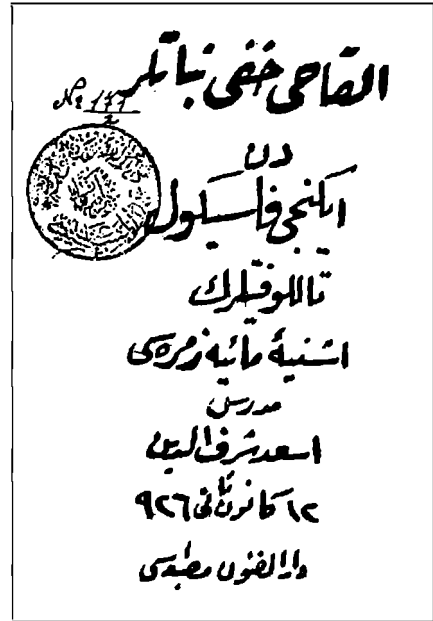 القاحى خفى نباتلر
№ 177
2
دن
ايكنجى فاسيكول
تاللوفيتلرك
اشنيۀ مائيه زمره‌سى
مدرس
اسعد شرف الدين
١٢ كانون ثانى ٩٢٦
دار الفنون مطبعه‌سى